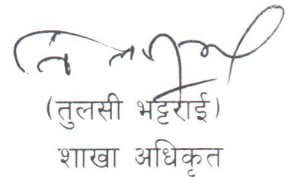 (तुलसी भट्टराई)
शाखा अधिकृत